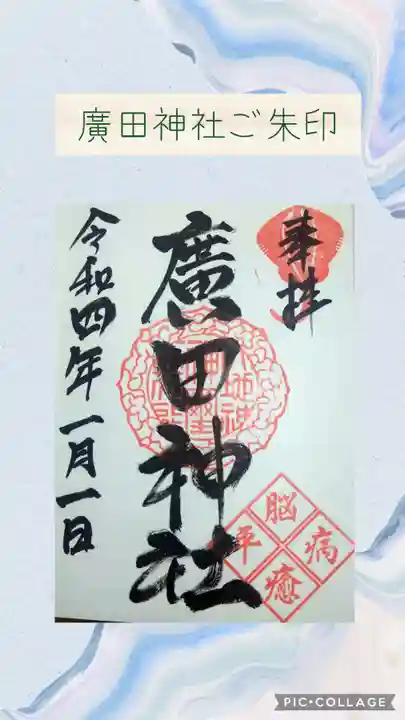 廣田神社ご朱印
奉拝
廣田神社
令和四年一月一日
脳
病
平
癒
PIC•COLLAGE